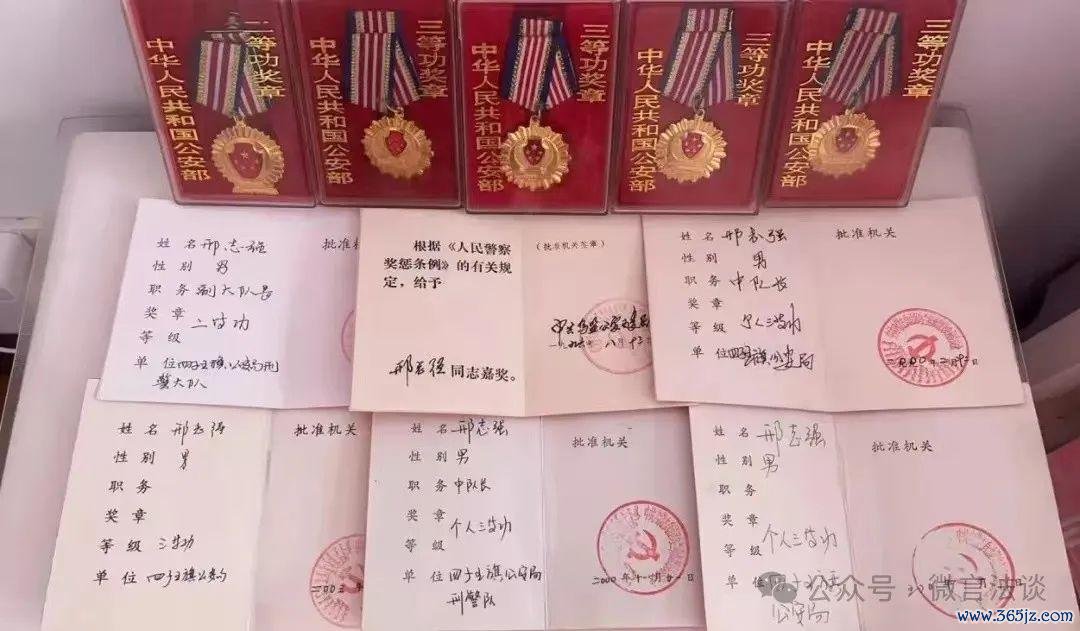 二等功奖章
中华人民共和国公安部
三等功奖章
中华人民共和国公安部
三等功奖章
中华人民共和国公安部
三等功奖章
中华人民共和国公安部
三等功奖章
中华人民共和国公安部
姓名 邢志强
性别 男
职务 副大队长
奖章
等级 二等功
单位 四子王旗公安局刑
警大队
批准机关
根据《人民警察
奖惩条例》的有关规
定，给予
邢志强同志嘉奖。
（批准机关签章）
姓名 邢志强
性别 男
职务 中队长
奖章
等级 个人三等功
单位 四子王旗公安局
批准机关
姓名 邢志强
性别 男
职务
奖章
等级 三等功
单位 四子王旗公安局
批准机关
姓名 邢志强
性别 男
职务 中队长
奖章
等级 个人三等功
单位 四子王旗公安局
刑警队
批准机关
姓名 邢志强
性别 男
职务
奖章
等级 个人三等功
单位
公安局
批准机关
公众号：微言法谈
www.365jz.com